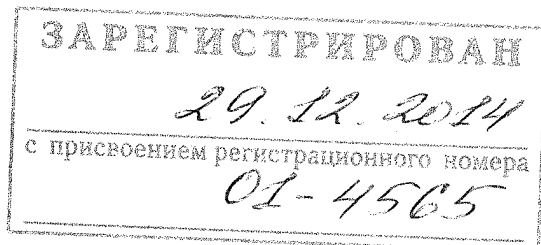 ЗАРЕГИСТРИРОВАН
29.12.2014
с присвоением регистрационного номера
01-4565